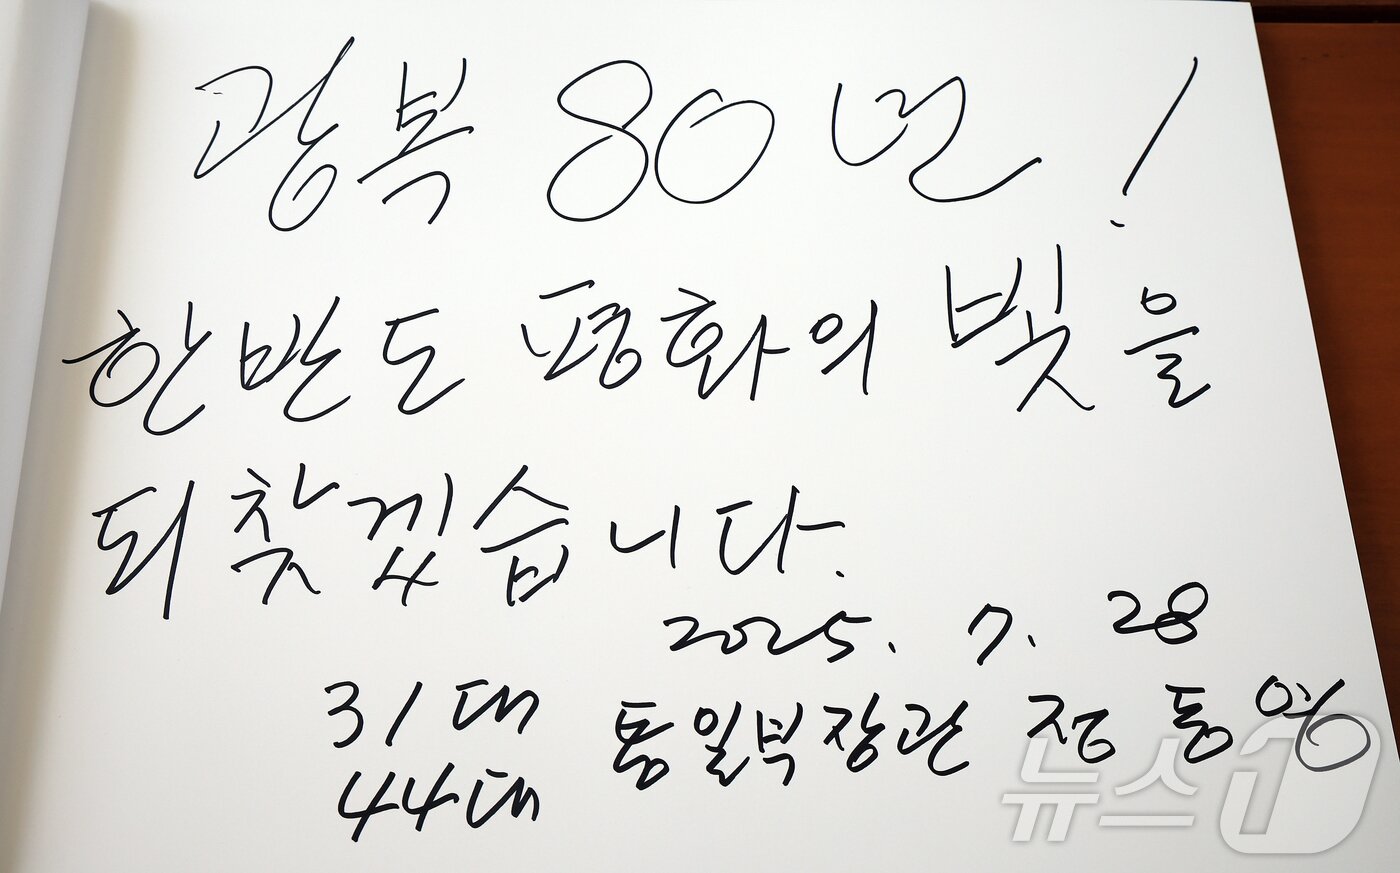 광복 80년!
한반도 평화의 빛을
되찾겠습니다.
2025. 7. 28
31대
44대 통일부장관 정동영
뉴스1